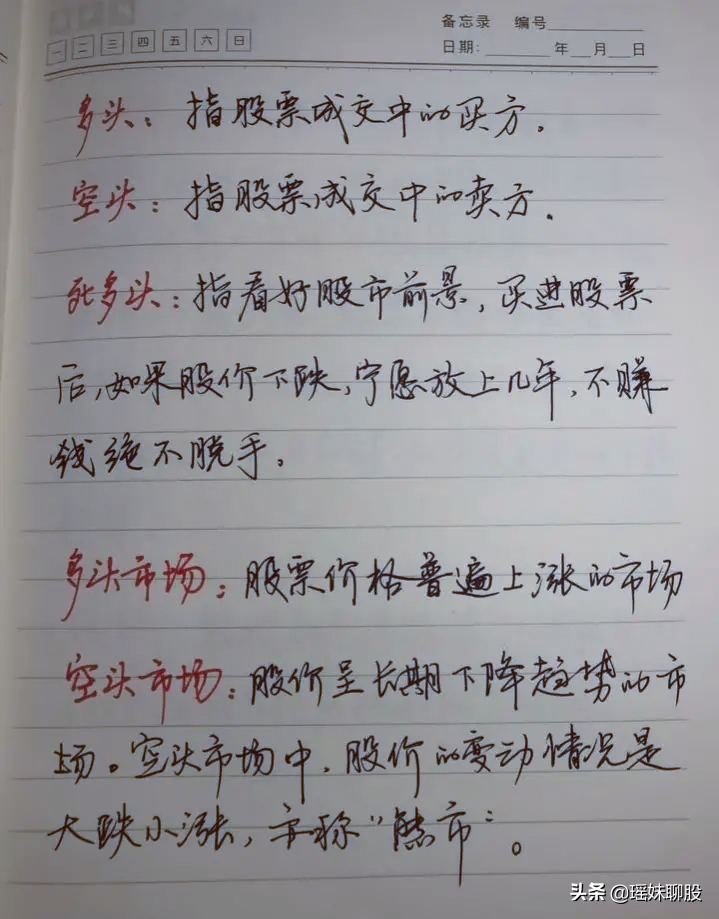 备忘录 编号
一 二 三 四 五 六 日
日期: 年 月 日
多头：指股票成交中的买方．
空头：指股票成交中的卖方．
死多头：指看好股市前景，买进股票
后，如果股价下跌，宁愿放上几年，不赚
钱绝不脱手。
多头市场：股票价格普遍上涨的市场
空头市场：股价呈长期下降趋势的市
场。空头市场中，股价的变动情况是
大跌小涨，亦称“熊市”。
头条 @瑶妹聊股